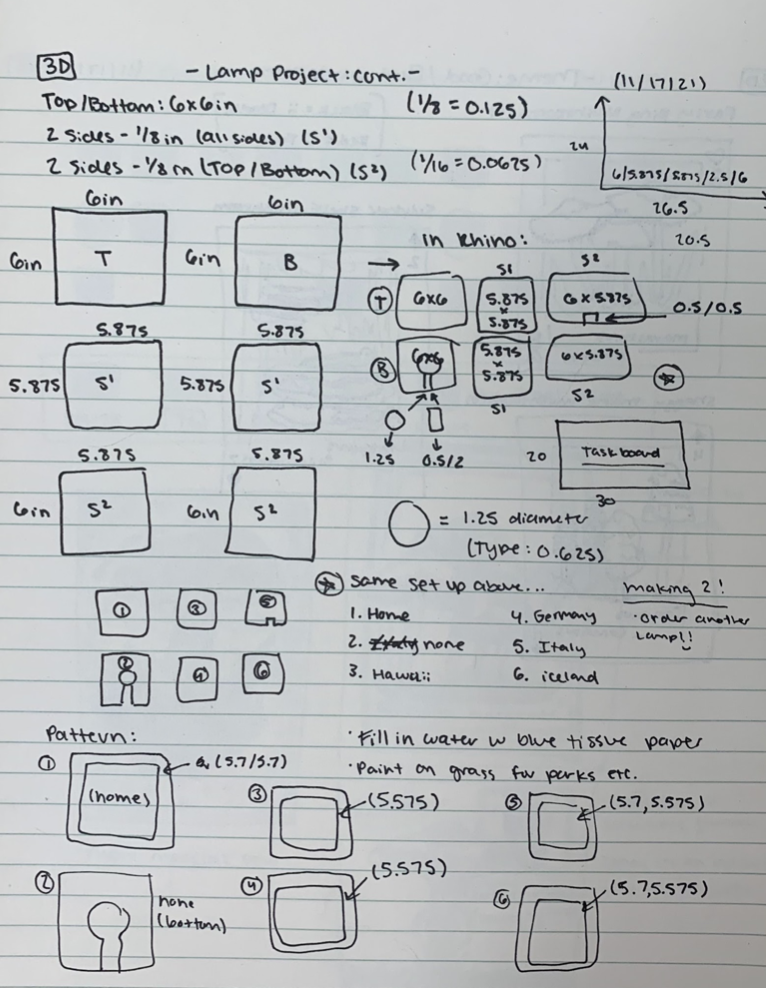 3D
- Lamp Project: cont. -
(11/17/21)
Top/Bottom: 6x6in
(1/8 = 0.125)
2 sides - 1/8 in (all sides) (S¹)
2 sides - 1/8 in (Top/Bottom) (S²)
(1/16 = 0.0625)
24
6/5.875/5.875/2.5/6
26.5
20.5
6in
6in
6in
T
6in
B
5.875
5.875
5.875
S¹
5.875
S¹
5.875
5.875
6in
S²
6in
S²
in Rhino:
S1
S2
T
6x6
5.875
x
5.875
6 x 5.875
0.5/0.5
B
6x6
5.875
x
5.875
6 x 5.875
S1
S2
1.25
0.5/2
20
Task board
30
= 1.25 diameter
(Type: 0.625)
1
3
5
2
4
6
same set up above...
making 2!
1. Home
4. Germany
· order another
Lamp!!
2. none
5. Italy
3. Hawaii
6. iceland
Pattern:
· Fill in water w blue tissue paper
· Paint on grass for parks etc.
1
(5.7/5.7)
(home)
3
(5.575)
5
(5.7, 5.575)
2
none
(bottom)
4
(5.575)
6
(5.7, 5.575)